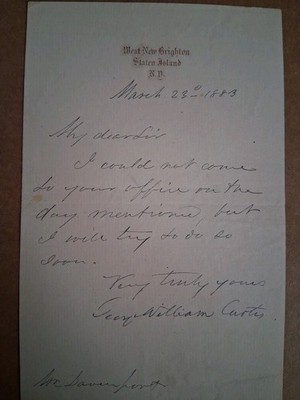 West New Brighton
Staten Island
N.Y.
March 23d 1883
My dear Sir
I could not come
to your office on the
day mentioned, but
I will try to do so
soon.
Very truly yours
George William Curtis
Mr Davenport